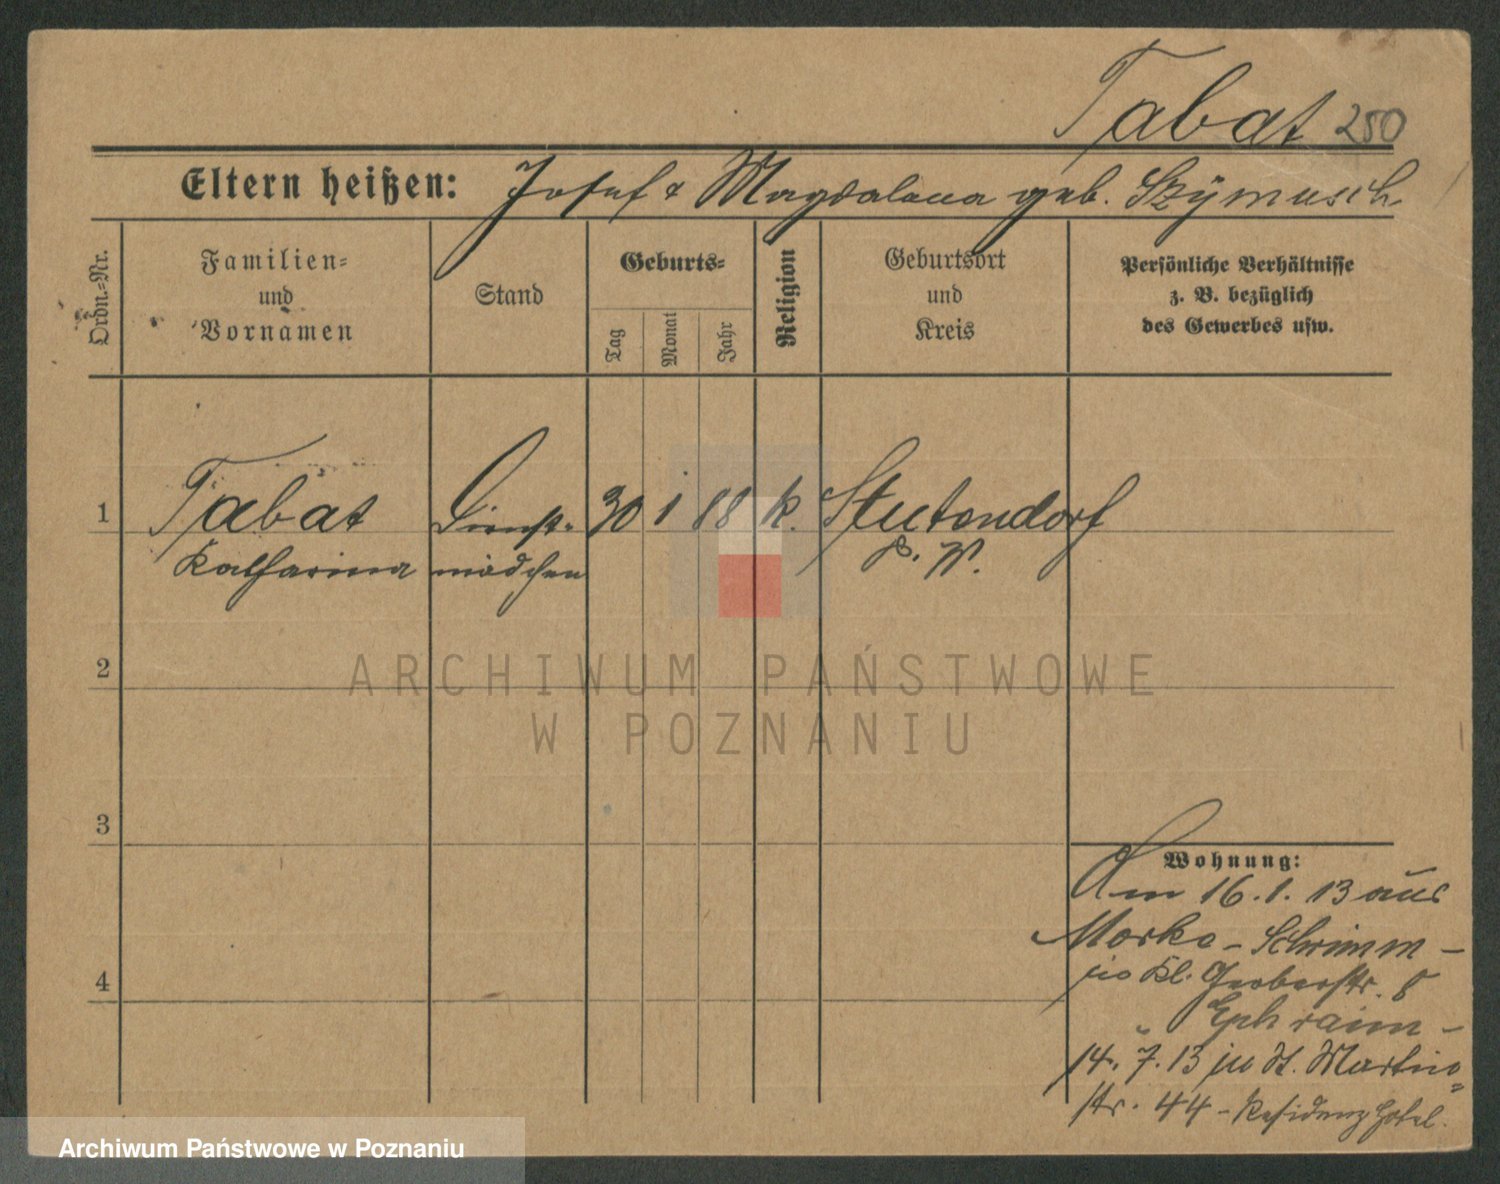 Tabat 250
Eltern heißen: Josef & Magdalena geb. Szymusch
Ordn.-Nr.
Familien-
und
Vornamen
Stand
Geburts-
Tag
Monat
Jahr
Religion
Geburtsort
und
Kreis
Persönliche Verhältnisse
z. B. bezüglich
des Gewerbes usw.
1 Tabat Dienst- 30 1 88 k. Stutendorf
Katharina mädchen P. W.
2
ARCHIWUM PAŃSTWOWE
W POZNANIU
3
Wohnung:
Am 16. 1. 13 aus
Marke - Schrimm -
zu Kl. Gerberstr. 8
" Ephraim -
14. 7. 13 zu St. Martin-
str. 44 - Residenzhotel.
4
Archiwum Państwowe w Poznaniu